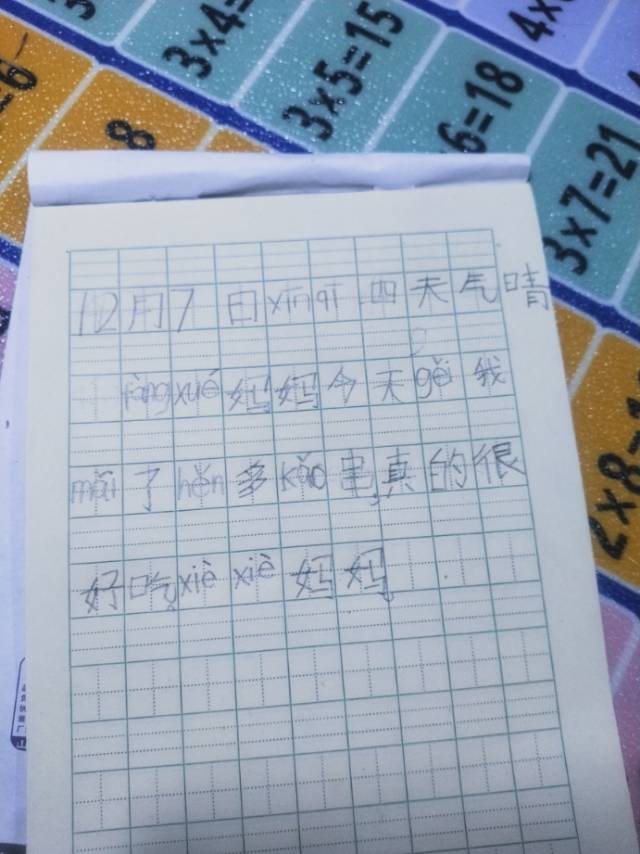 3×4=
3×5=15
6=18
3×7=21
4×
8
2×8=1
12月7日xīnqī四天气晴
fàngxué妈妈今天gěi我
mǎi了hěn多kǎo串,真的很
好吃,xiè xiè妈妈